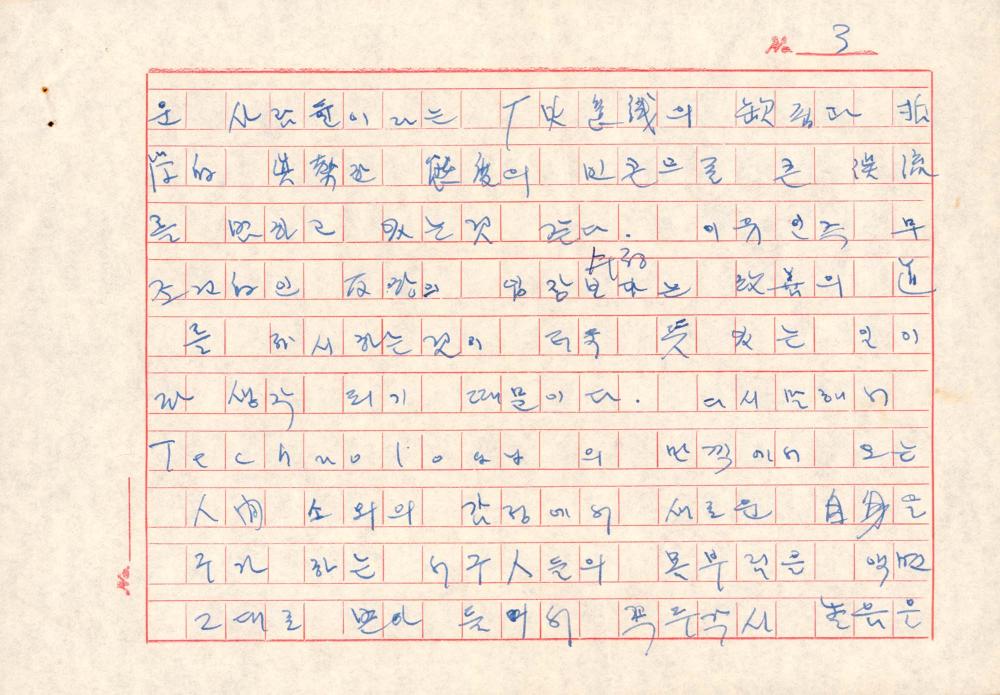 No. 3
운 사람들이라는 「史意識의 缺핍과 哲
学的 眞摯한 態度의 빈곤으로 큰 誤流
를 범하고 있는것 같다. 이유인즉 무
조건的인 反항의 입장보다는 改善의 道
를 제시하는것이 더욱 뜻 있는 일이
라 생각 되기 때문이다. 다시 말해서
Technology 의 만끽에서 오는
人間 소외의 감정에서 새로운 自身을
추가 하는 서구人들의 몸부림을 액면
그대로 받아 들여서 꼭두각시 놀음은
No.